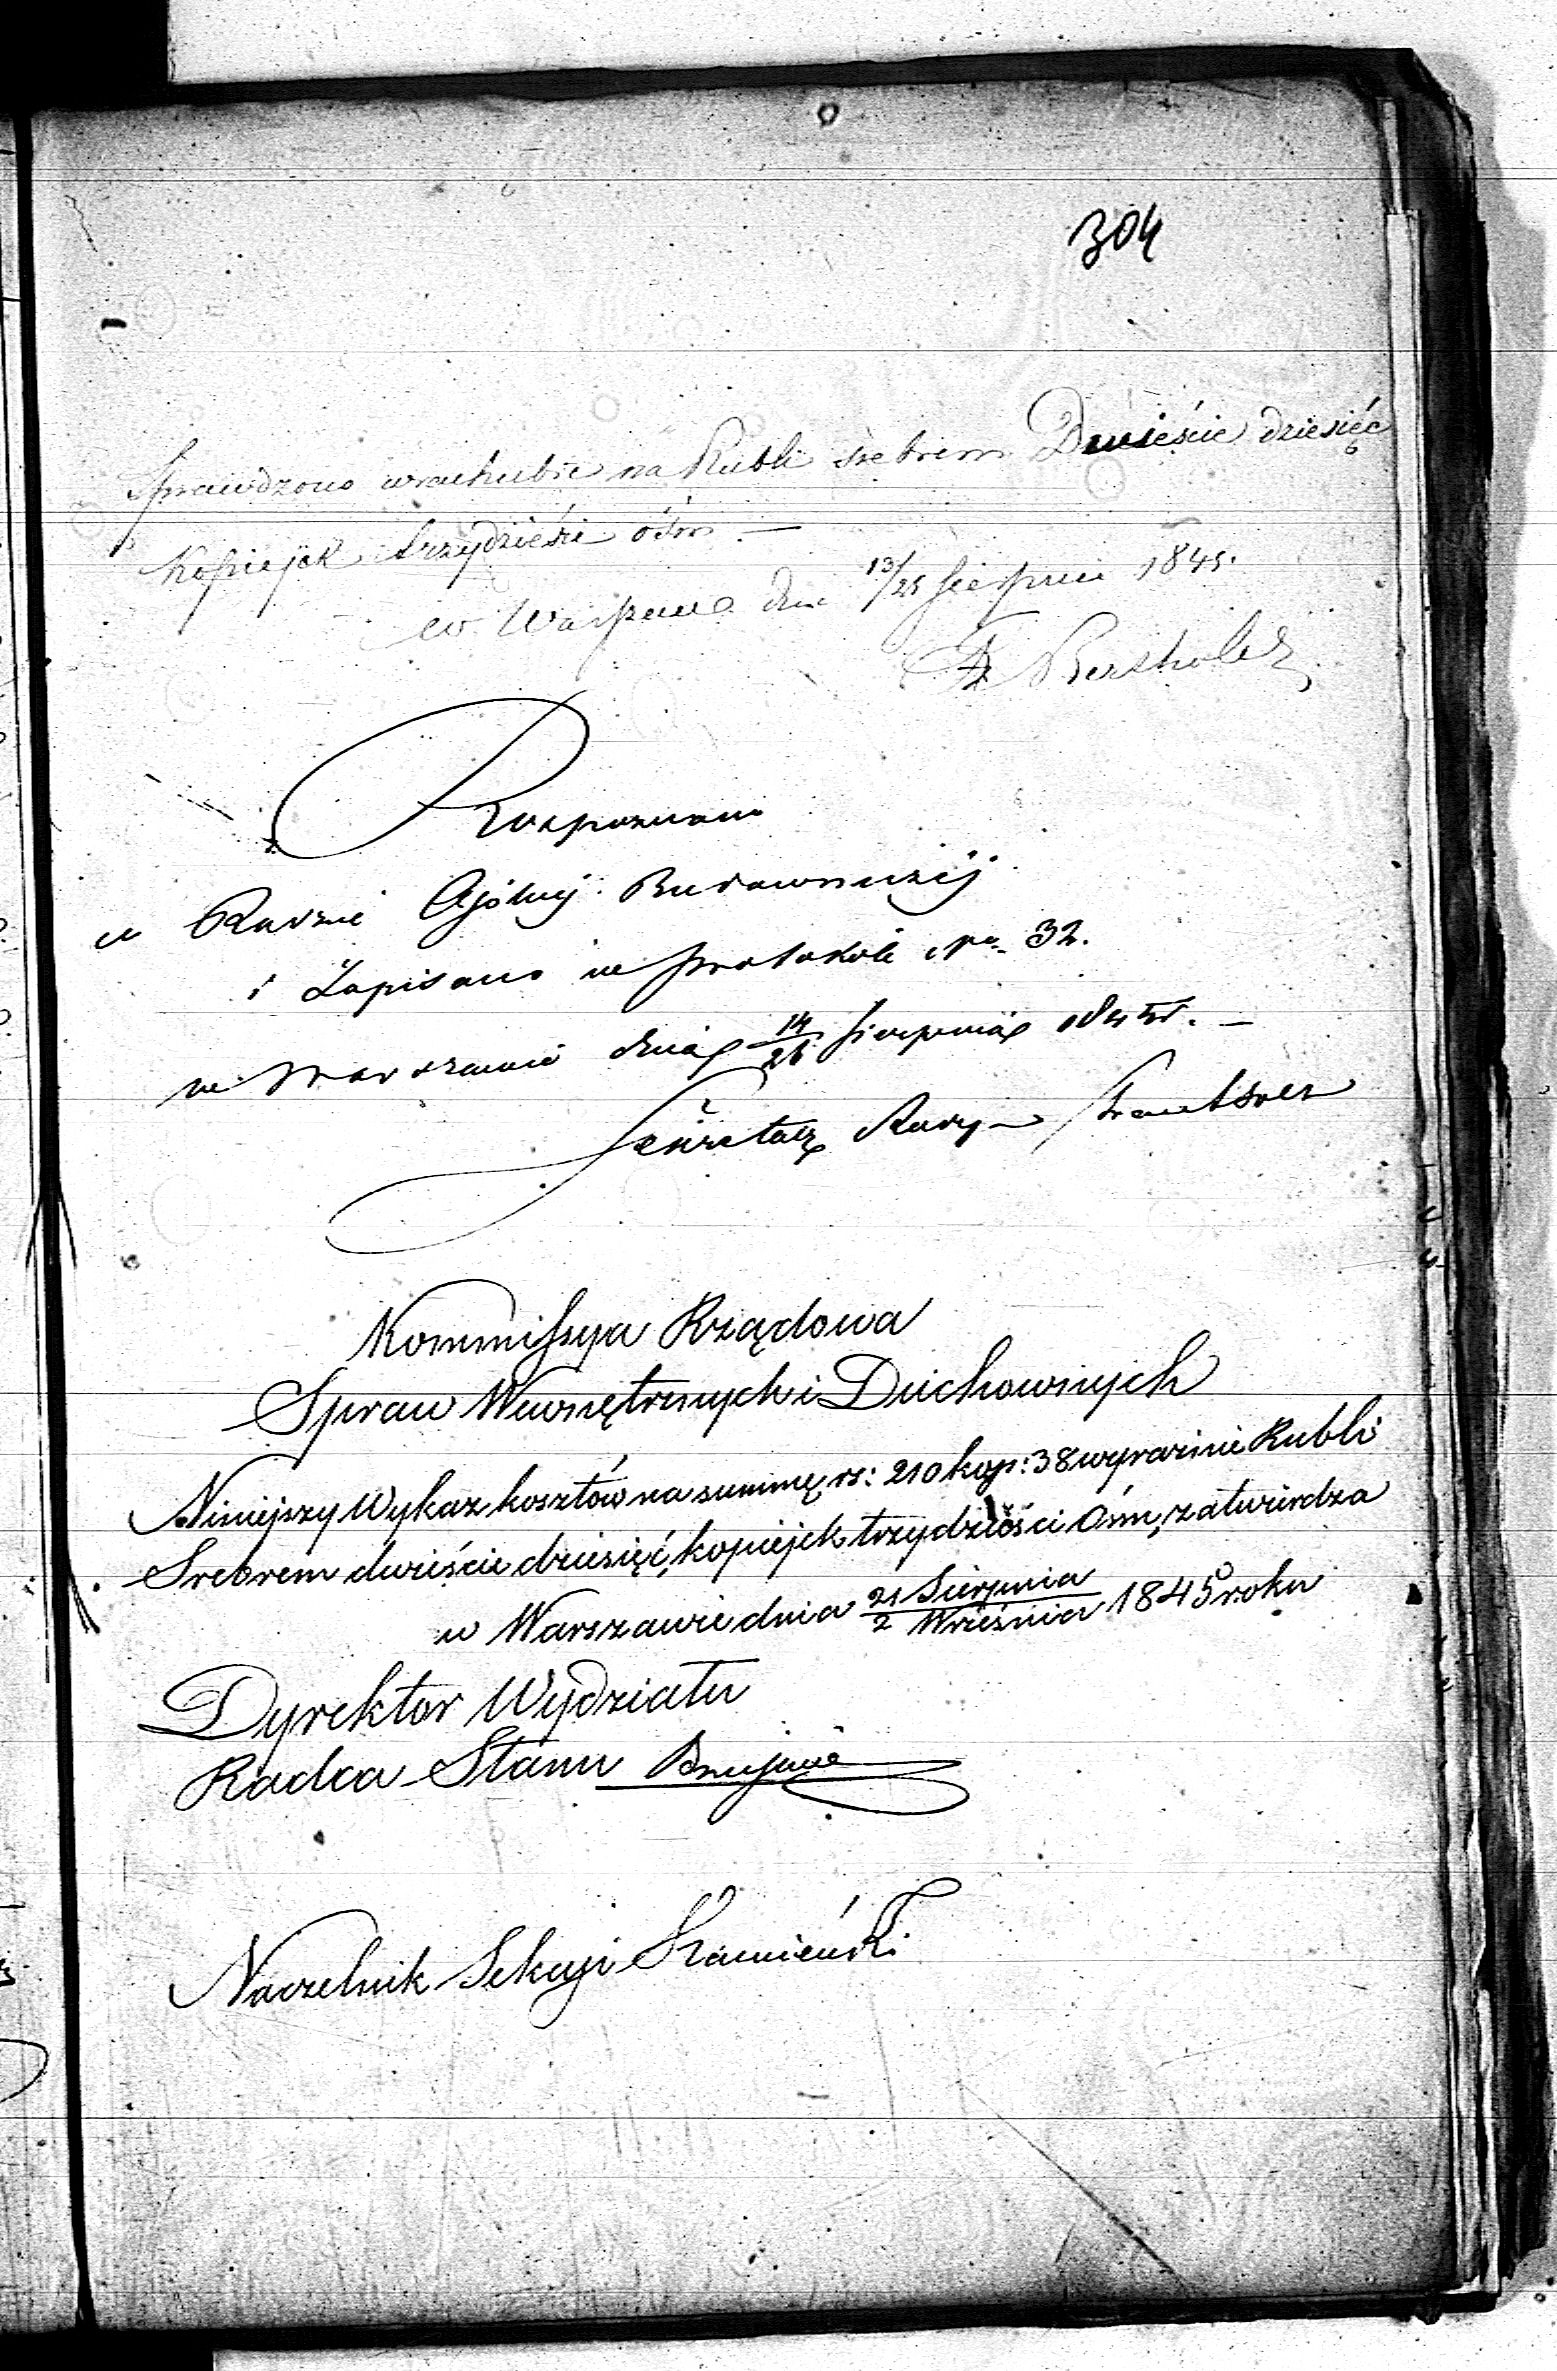 304
Sprawdzono w rachubie na Rubli srebrem Dwieście dziesięć
Kopiejek trzydzieści ośm. —
w Warszawie dnia 13/25 Sierpnia 1845.
Rozpoznano
w Radzie Ogólnéj Budowniczéj
i Zapisano w protokole No 32.
w Warszawie dnia 14/26 Sierpnia 1845 r. —
Sekretarz Rady
Kommissya Rządowa
Spraw Wewnętrznych i Duchownych
Niniejszy Wykaz kosztów na summę rs: 210 kop: 38 wyraźnie Rubli
Srebrem dwieście dziesięć, kopiejek trzydzieści ośm, zatwierdza
w Warszawie dnia 21 Sierpnia / 2 Września 1845 roku
Dyrektor Wydziału
Radca Stanu
Naczelnik Sekcyi Kamieński